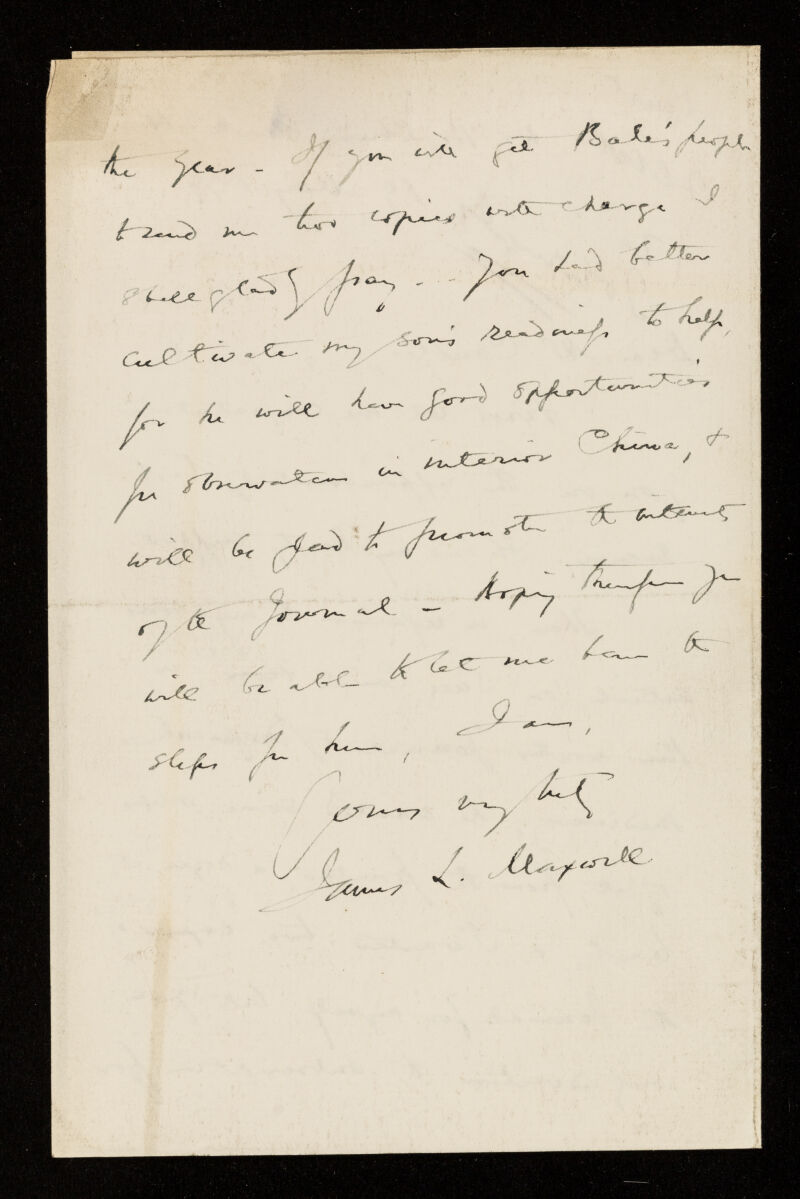 the year - If you will get Bale's people
to send me two copies with charge I
shall gladly pay - ... You had better
cultivate my son's readiness to help,
for he will have good opportunities
for observations in interior China, &
will be glad to promote the interests
of the Journal - Hoping therefore you
will be able to let me have the
slips for him, I am,
Yours very truly
James L. Maxwell